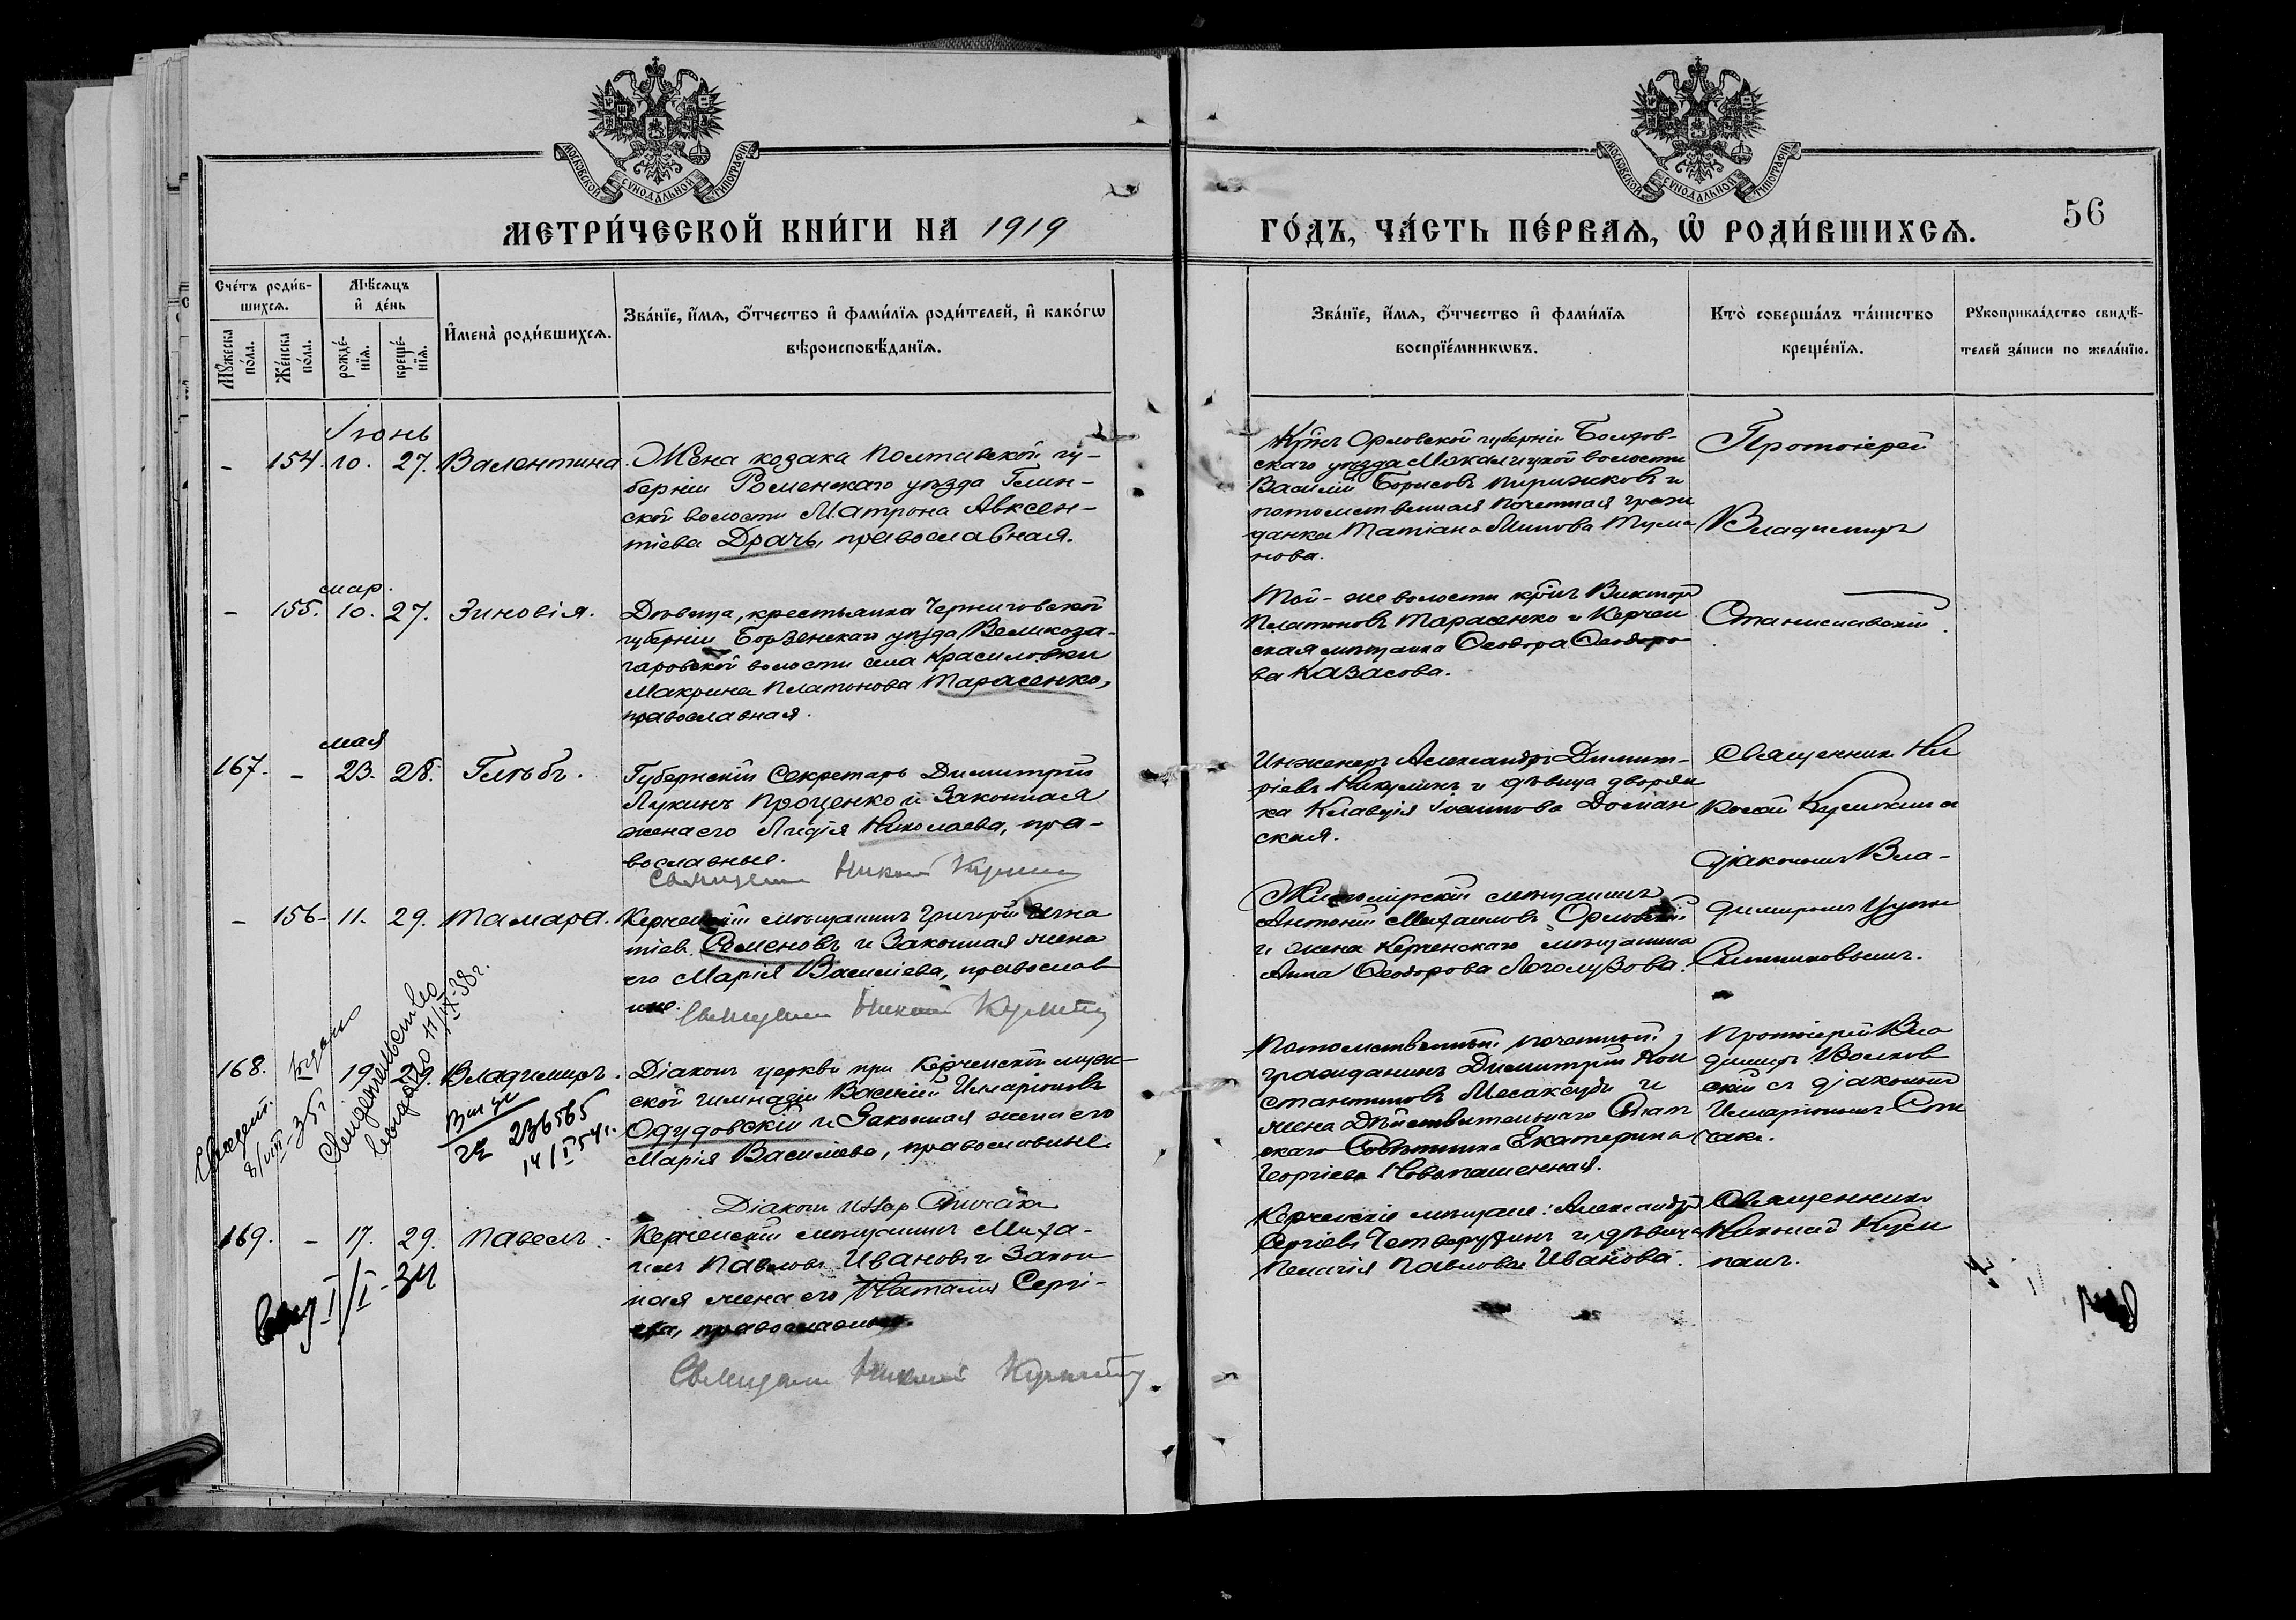 МОСКОВСКОЙ СѴНОДАЛЬНОЙ ТИПОГРАФІИ
МЕТРИ́ЧЕСКОЙ КНИ́ГИ НА 1919
Сче́тъ роди́в-
шихсѧ.
Мꙋ́жеска
по́ла.
Же́нска
по́ла.
Мѣ́сѧцъ
и҆ де́нь
рожде́-
нїѧ.
креще́-
нїѧ.
И҆мена̀ роди́вшихсѧ.
Зва́нїе, и҆́мѧ, ѻ҆́тчество и҆ фами́лїѧ роди́телей, и҆ како́гѡ
вѣроисповѣ́данїѧ.
Іюнь
- 154. 10. 27. Валентина. Жена козака Полтавской гу-
берніи Роменскаго уѣзда Глин-
ской волости Матрона Авксен-
тіева Драчь, православная.
мар.
- 155. 10. 27. Зиновія. Дѣвица, крестьянка Черниговской
губерніи Борзенскаго уѣзда Великоза-
гаровской волости села Красиловки
Макрина Платонова Тарасенко,
православная.
мая
167. - 23. 28. Глѣбъ. Губернскій Секретарь Димитрій
Лукинъ Проценко и законная
жена его Лидія Николаева, пра-
вославные.
Священник
- 156. 11. 29. Тамара. Керченскій мѣщанинъ Григорій Игна
тіев. Семеновъ и законная жена
его Марія Василіева, православ
ные. Священник
168. 19. 29. Владимиръ. Діаконъ церкви при Керченской муж-
ской гимназіи Василій Иларіоновъ
Одудовскій и законная жена его
Марія Василіева, православные.
Свидет.
8/VIII-35г
Свидетельство
выдано 11/IX-38г.
236565
14/I 54г.
Діакон
169. - 17. 29. Павелъ. Керченскій мѣщанинъ Миха-
илъ Павловъ Ивановъ и закон
ная жена его Наталія Сергі-
ева, православные.
I/I-34
Священник
МОСКОВСКОЙ СѴНОДАЛЬНОЙ ТИПОГРАФІИ
ГО́ДЪ, ЧА́СТЬ ПЕ́РВАѦ, Ѡ҆ РОДИ́ВШИХСѦ.
56
Зва́нїе, и҆́мѧ, ѻ҆́тчество и҆ фами́лїѧ
воспрїе́мникѡвъ.
Кто̀ соверша́лъ та́инство
креще́нїѧ.
Рꙋкоприкла́дство свидѣ́-
телей за́писи по жела́нїю.
Кр̃інъ Орловской губерніи Болхов-
скаго уѣзда волости
Василій Борисовъ Пирожковъ и
потомственная почетная граж
данка Татіана Тума-
нова.
Протоіерей
Владимиръ
Той-же волости кр̃інъ Викторъ
Платоновъ Тарасенко и Керчен
ская мѣщанка Ѳеодора Ѳеодоро
ва Казасова.
Станиславскій.
Инженеръ Александръ Димит-
ріевъ Никулинъ и дѣвица дворян
ка Клавдія Іоаннова Доман
ская.
Священникъ Ни
діакономъ Вла-
Житомірскій мѣщанинъ
Антоній Михаиловъ Орловскій
и жена Керченскаго мѣщанина
Анна Ѳеодорова
димиромъ
Потомственный почетный
гражданинъ Димитрій Кон
стантиновъ Месаксуди и
жена Дѣйствительнаго Стат
скаго Совѣтника Екатерина
Георгіева Новопашенная.
Протоіерей Вла
димиръ Волков
скій съ діакономъ
Иларіономъ
Керченскіе мѣщане: Александръ
Сергіевъ Четверухинъ и дѣвица
Пелагія Павлова Иванова.
Священникъ